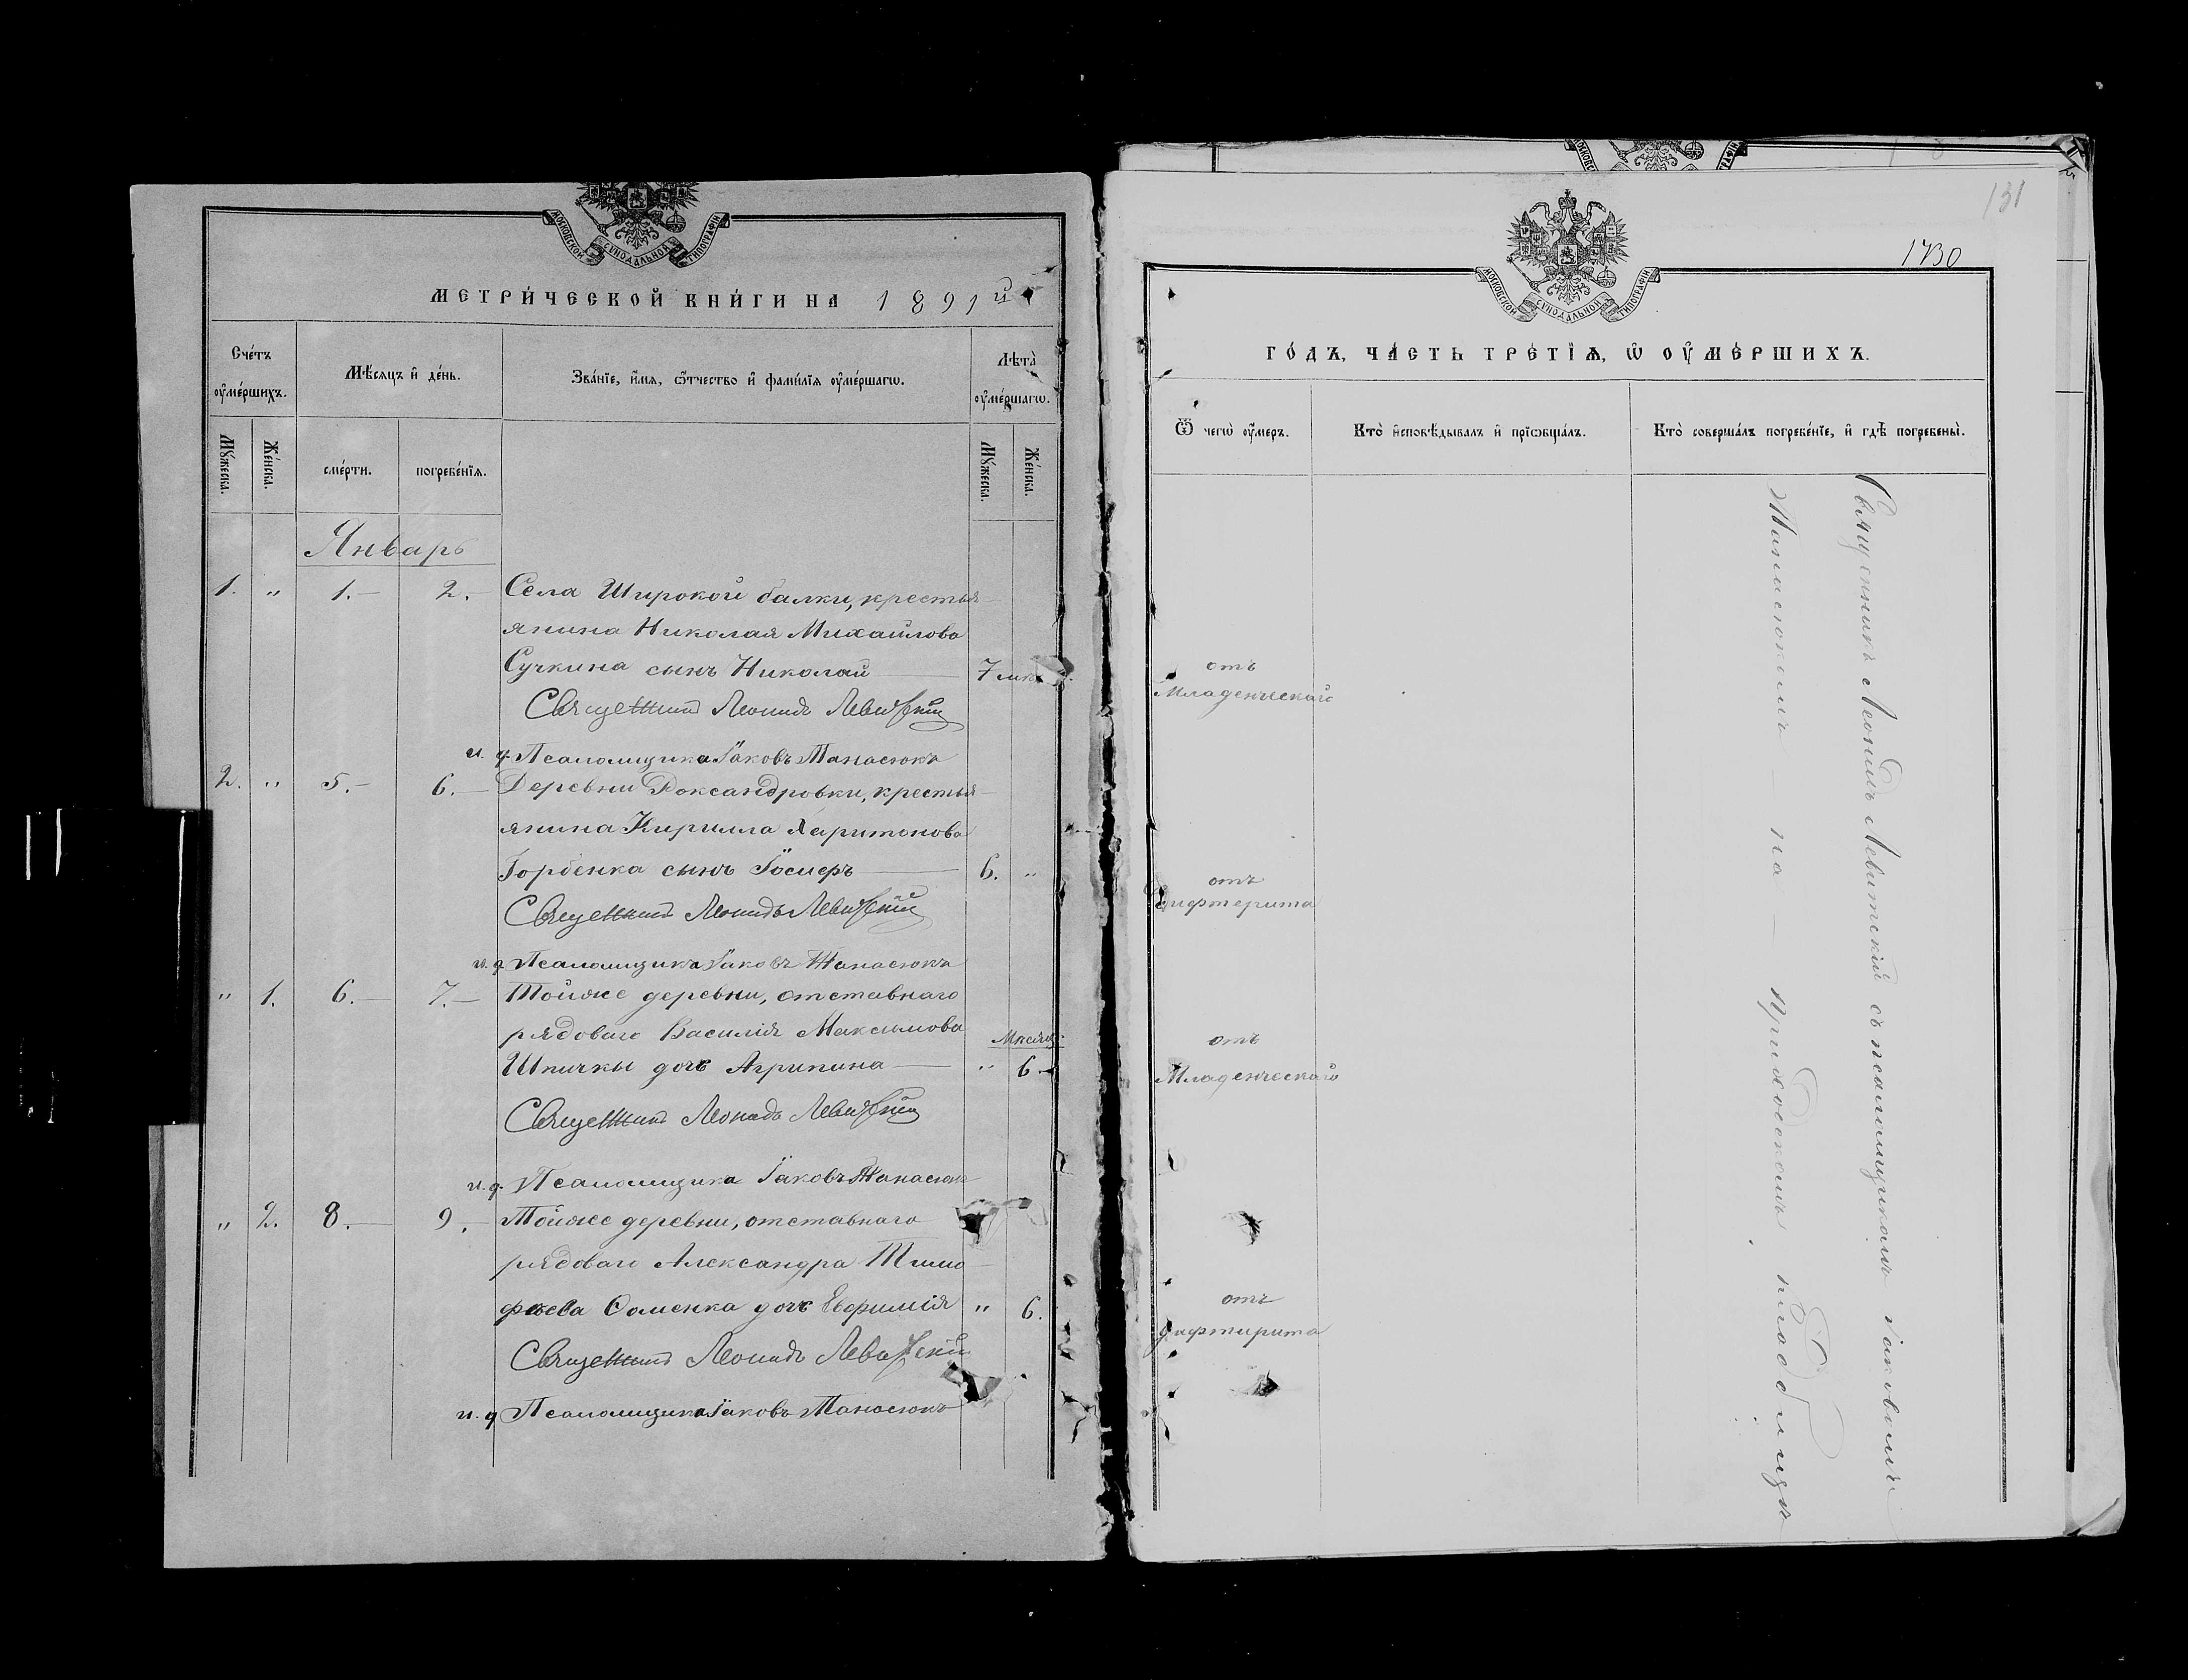 МОСКОВСКОЙ СУНОДАЛЬНОЙ ТИПОГРАФІИ
МЕТРИ́ЧЕСКОЙ КНИ́ГИ НА 1891й
Сче́тъ оу҆ме́ршихъ.
Мѣ́сяцъ и҆ де́нь.
Зва́нїе, и҆́мя, ѻ҆́тчество и҆ фами́лїя оу҆ме́ршагѡ.
Лѣта̀ оу҆ме́ршагѡ.
Мꙋ́жеска.
Же́нска.
сме́рти.
погребе́нїѧ.
Мꙋ́жеска.
Же́нска.
Январь
1. " 1.— 2.— Села Широкой балки, крестья-
янина Николая Михайлова
Сучкина сынъ Николай — 7
Священникъ Леонидъ Левитскій
и. д. Псаломщика Іаковъ Танасюкъ
2. " 5.— 6.— Деревни Роксандровки, крестья-
янина Кирилла Харитонова
Горбенка сынъ Іосифъ — 6. "
Священникъ Леонидъ Левитскій
и. д. Псаломщика Іаковъ Танасюкъ
" 1. 6.— 7.— Тойже деревни, отставнаго
рядоваго Василія Максимова
Мѣсяц.
Шпички дочь Агрипина — " 6.
Священникъ Леонидъ Левитскій
и. д. Псаломщика Іаковъ Танасюкъ
" 2. 8.— 9.— Тойже деревни, отставнаго
рядоваго Александра Тимо-
фѣева Соменка дочь Евфимія " 6.
Священникъ Леонидъ Левитскій
и. д. Псаломщика Іаковъ Танасюкъ
131
1730
МОСКОВСКОЙ СУНОДАЛЬНОЙ ТИПОГРАФІИ
ГО́ДЪ, ЧА́СТЬ ТРЕ́ТЇѦ, Ѡ҆ ОУ҆МЕ́РШИХЪ.
Ѿ чегѡ̀ оу҆́меръ.
Кто̀ и҆сповѣ́дывалъ и҆ прїѡбща́лъ.
Кто̀ соверша́лъ погребе́нїе, и҆ гдѣ̀ погребены̀.
отъ
Младенческаго
отъ
Дифтерита
отъ
Младенческаго
отъ
дифтирита
Священникъ Леонидъ Левитскій съ псаломщикомъ Іаковомъ
на — приходскомъ кладбищѣ